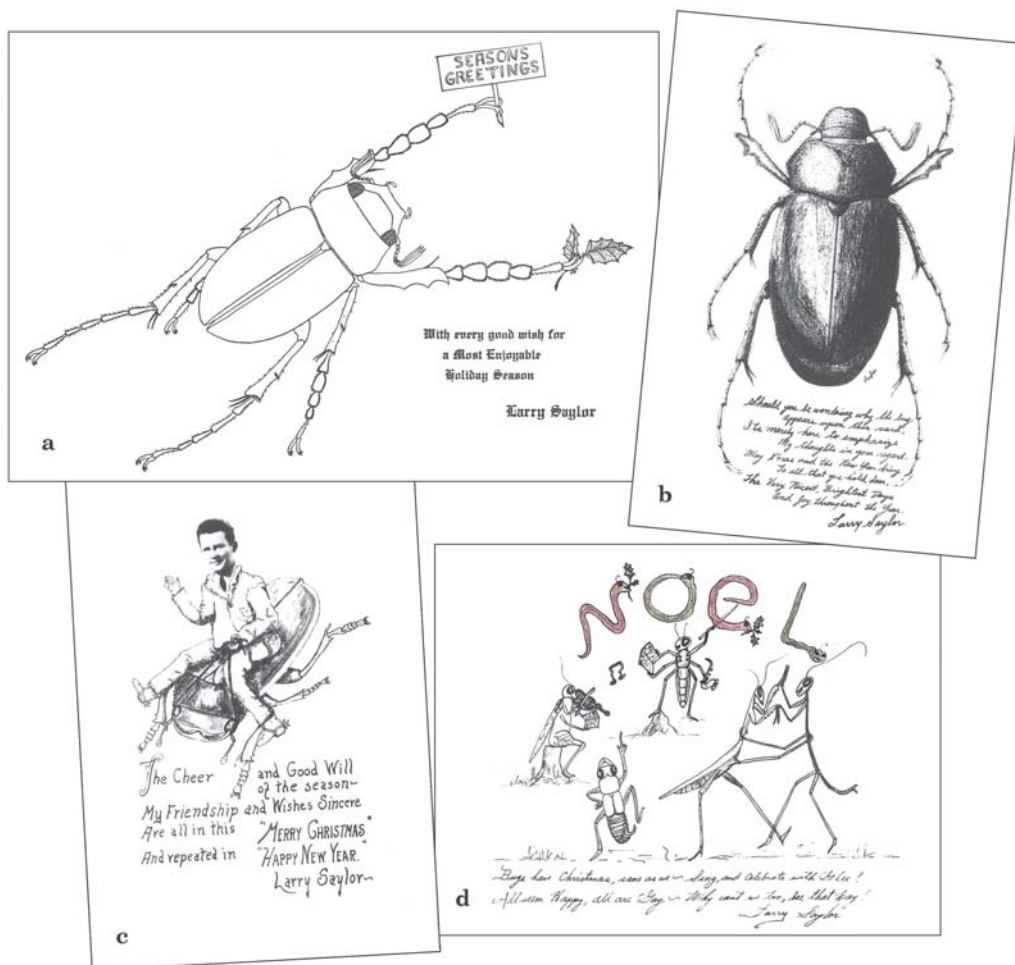 SEASONS
GREETINGS
With every good wish for
a Most Enjoyable
Holiday Season
Larry Saylor
a
Should you be wondering why this bug
Appears upon this card.
It's merely here to emphasize
My thoughts in your regard.
May Xmas and the New Year bring
To all that you hold dear,
The Very Nicest, Brightest Days
And Joy throughout the Year.
Larry Saylor
b
The Cheer and Good Will
of the season~
My Friendship and Wishes Sincere
Are all in this "MERRY CHRISTMAS"
And repeated in "HAPPY NEW YEAR."
Larry Saylor~
c
NOEL
Bugs have Christmas, same as we ~ Sing, and celebrate with Glee!
All seem Happy, all are Gay ~ Why can't we too, be that way!
~Larry Saylor
d